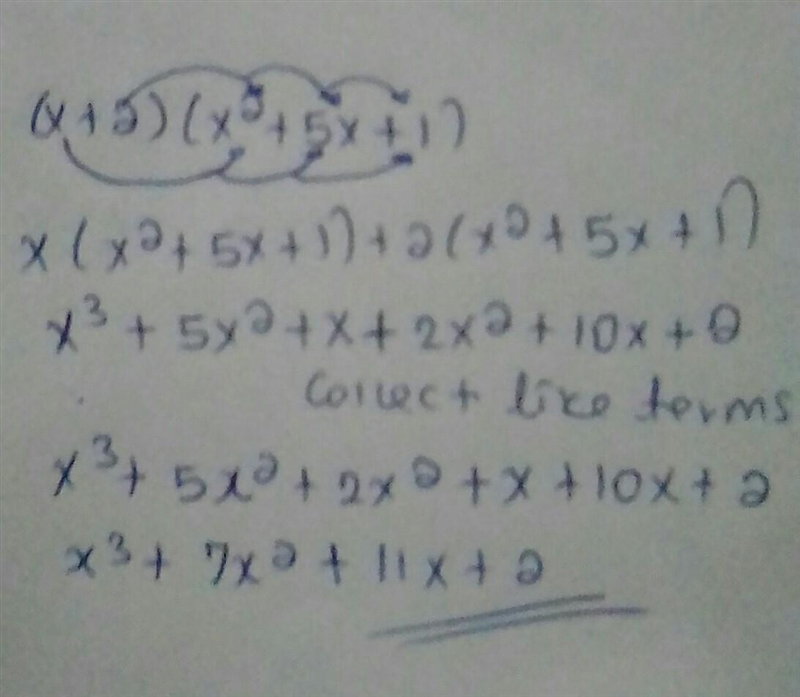 (x+2)(x²+5x+1)
x(x²+5x+1)+2(x²+5x+1)
x³+5x²+x+2x²+10x+2
Collect like terms
x³+5x²+2x²+x+10x+2
x³+7x²+11x+2